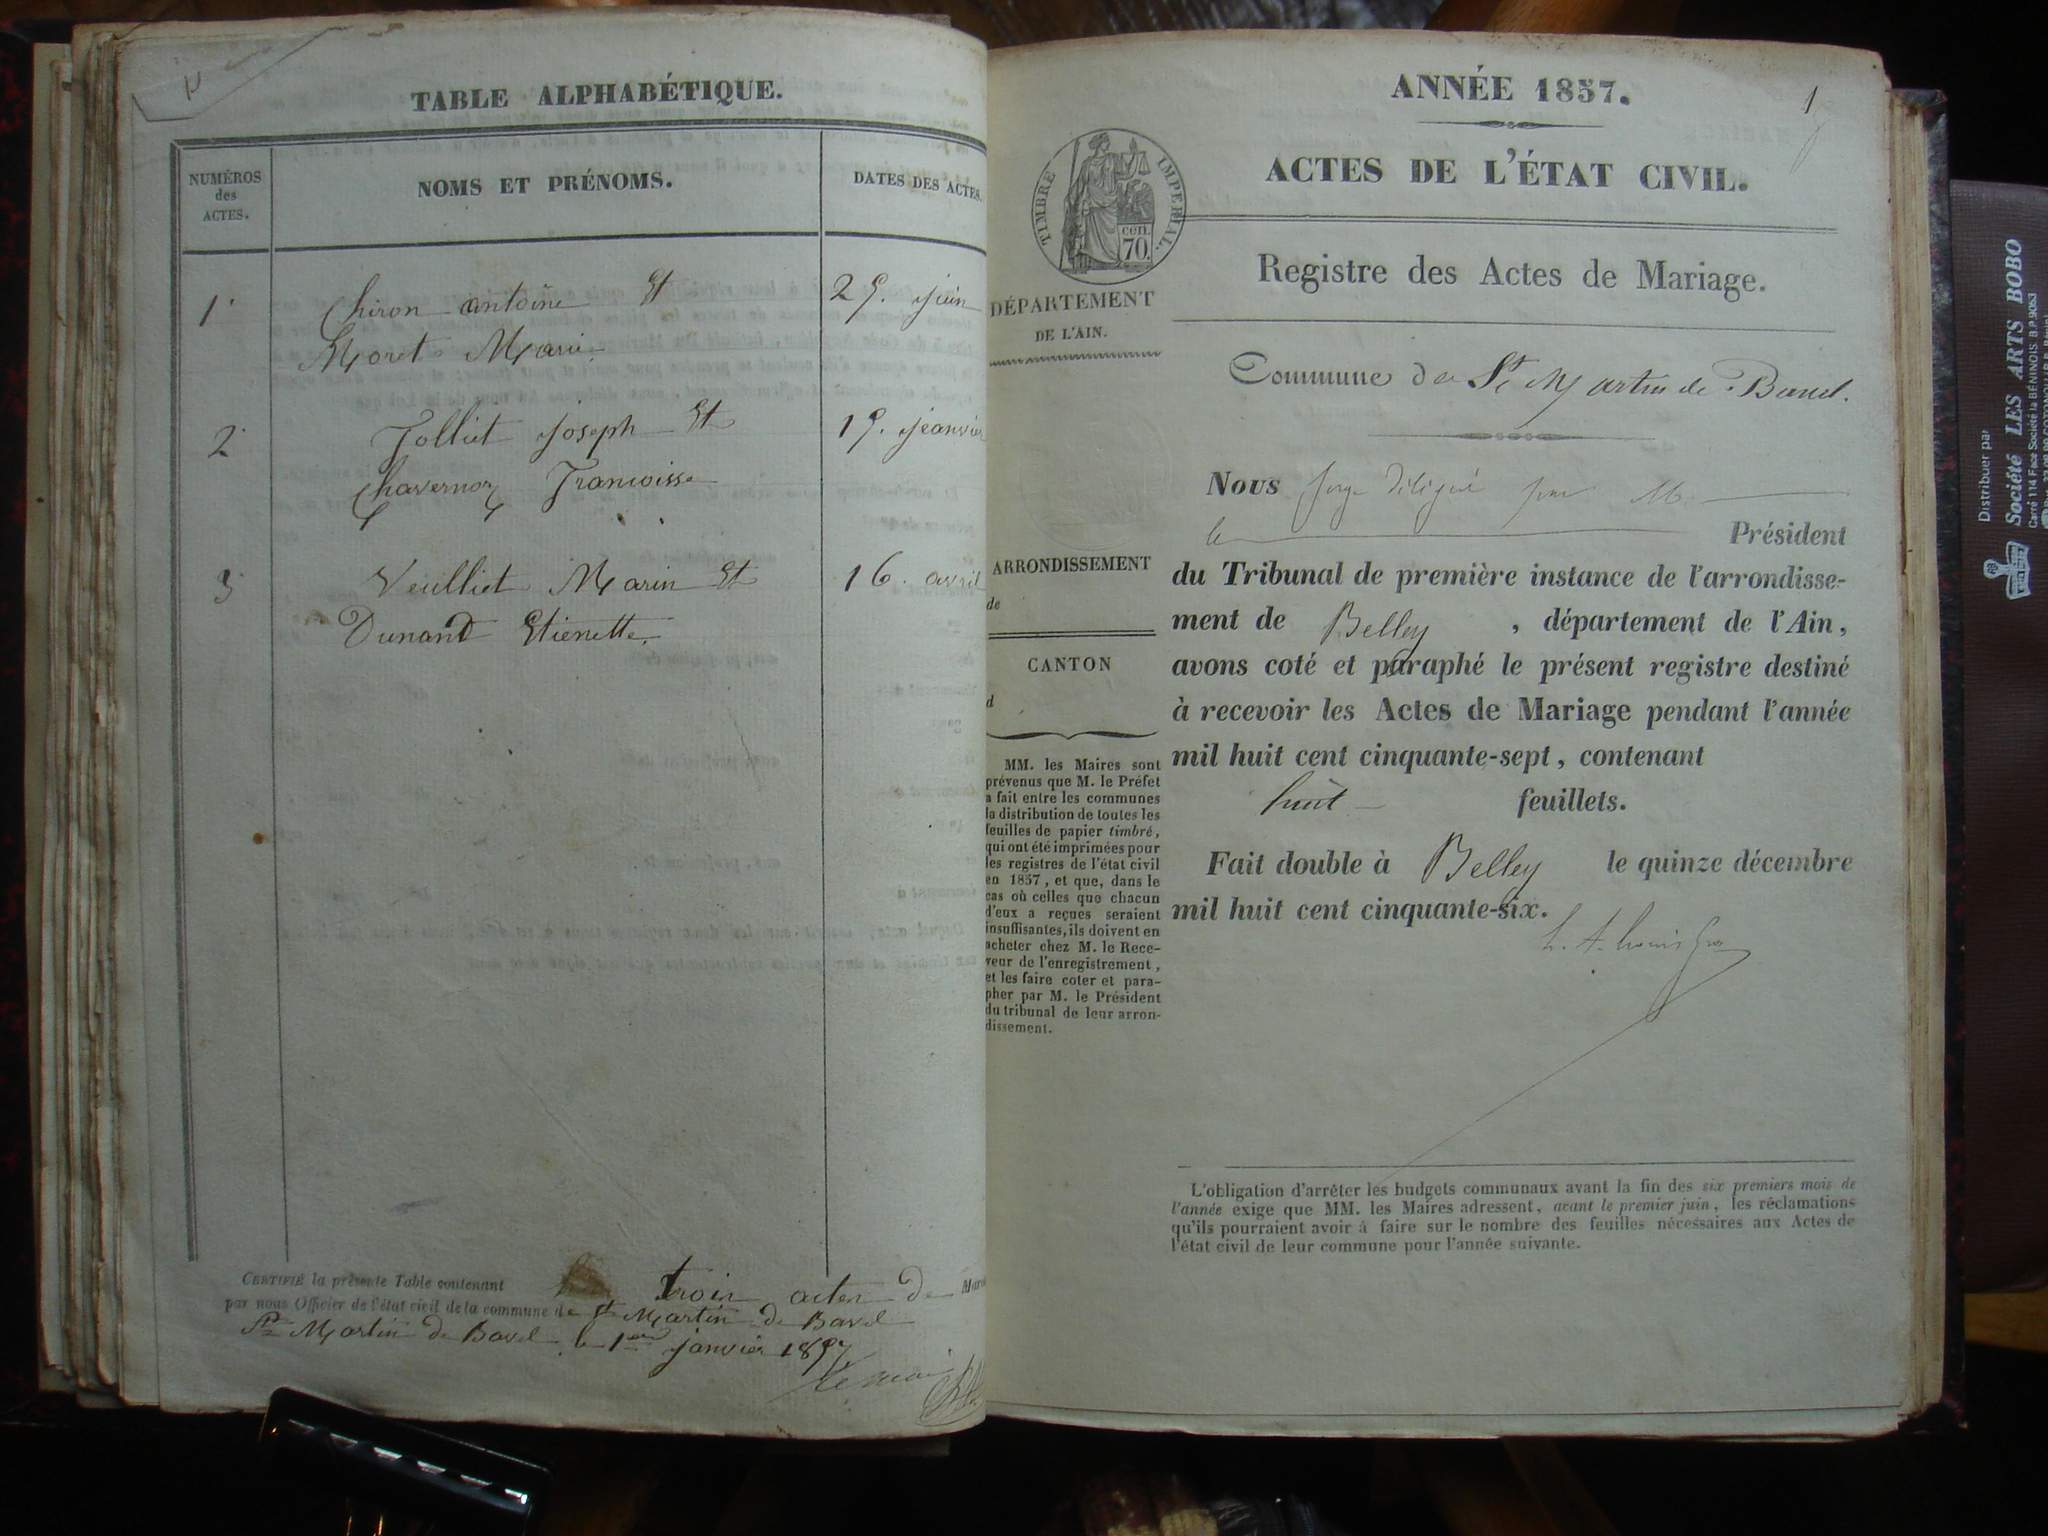 TABLE ALPHABÉTIQUE.
NUMÉROS
des
ACTES.
NOMS ET PRÉNOMS.
DATES DES ACTES.
1 Chiron antoine Et 25. juin
Moret Marie
2 Jolliet joseph Et 15. jeanvier
Chavernoz Francoisse
3 Veulliet Marin Et 16. avril
Dunand Etienette
CERTIFIÉ la présente Table contenant trois actes de Mari
par nous Officier de l'état civil de la commune de St Martin de Bavel
St Martin de Bavel le 1er janvier 1857
Le maire
ANNÉE 1857.
1
ACTES DE L'ÉTAT CIVIL.
TIMBRE IMPERIAL.
cen.
70.
Registre des Actes de Mariage.
DÉPARTEMENT
DE L'AIN.
Commune de St Martin de Bavel.
Nous Juge délégué par M.
le Président
du Tribunal de première instance de l'arrondisse-
ment de Belley, département de l'Ain,
avons coté et paraphé le présent registre destiné
à recevoir les Actes de Mariage pendant l'année
mil huit cent cinquante-sept, contenant
huit feuillets.
Fait double à Belley le quinze décembre
mil huit cent cinquante-six.
ARRONDISSEMENT
de
CANTON
d
MM. les Maires sont
prévenus que M. le Préfet
a fait entre les communes
la distribution de toutes les
feuilles de papier timbré,
qui ont été imprimées pour
les registres de l'état civil
en 1857, et que, dans le
cas où celles que chacun
d'eux a reçues seraient
insuffisantes, ils doivent en
acheter chez M. le Rece-
veur de l'enregistrement,
et les faire coter et para-
pher par M. le Président
du tribunal de leur arron-
dissement.
L'obligation d'arrêter les budgets communaux avant la fin des six premiers mois de
l'année exige que MM. les Maires adressent, avant le premier juin, les réclamations
qu'ils pourraient avoir à faire sur le nombre des feuilles nécessaires aux Actes de
l'état civil de leur commune pour l'année suivante.
Distribuer par
Société LES ARTS BOBO
Carré 114 Face Société la BÉNINOIS. B.P. 9063